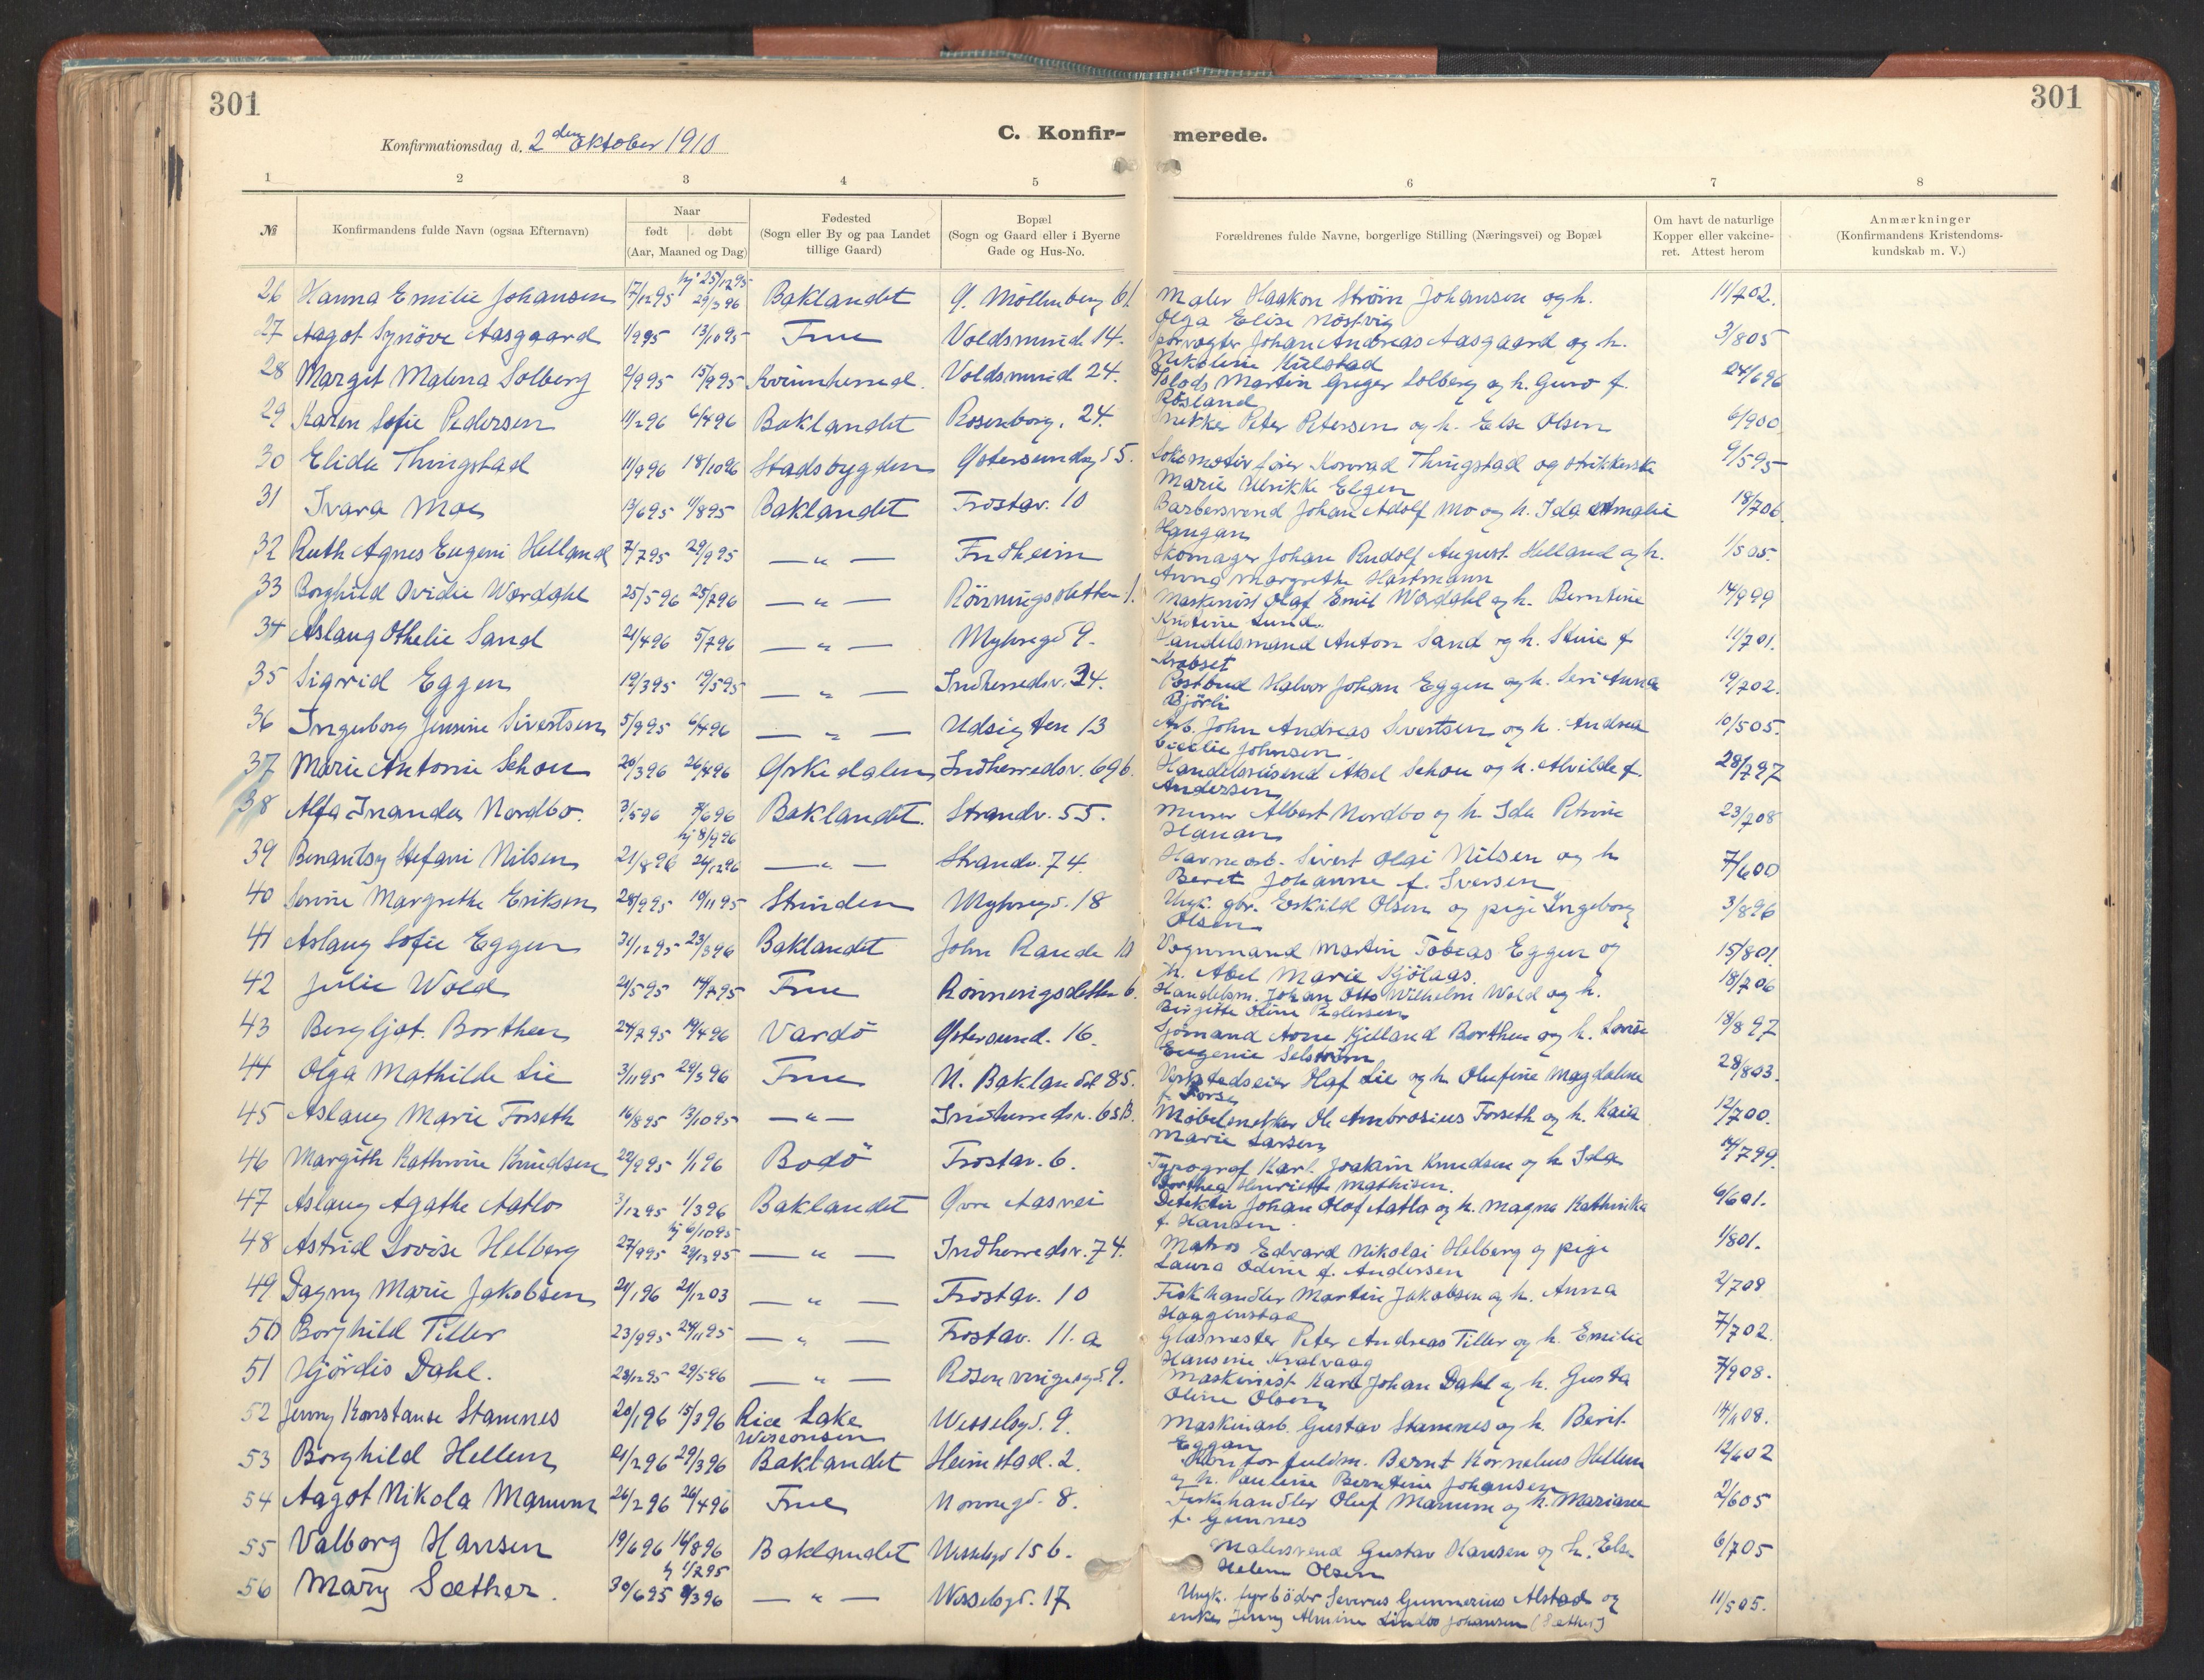 301
301
Konfirmationsdag d. 2den Oktober 1910
C. Konfir-
merede.
1 2 3 4 5 6 7 8
№ Konfirmandens fulde Navn (ogsaa Efternavn)
Naar
født døbt
(Aar, Maaned og Dag)
Fødested
(Sogn eller By og paa Landet
tillige Gaard)
Bopæl
(Sogn og Gaard eller i Byerne
Gade og Hus-No.
Forældrenes fulde Navne, borgerlige Stilling (Næringsvei) og Bopæl
Om havt de naturlige
Kopper eller vakcine-
ret. Attest herom
Anmærkninger
(Konfirmandens Kristendoms-
kundskab m. V.)
26 Hanna Emilie Johansen 17/12 95 hj. 25/12 95 29/3 96 Baklandet Ø. Möllenberg 61 Maler Haakon Ström Johansen og h. 11/7 02.
Olga Elise Nöstvig
27 Aagot Synöve Aasgaard 1/9 95 13/10 95 Frue Voldsmind 14. Sporvogter Johan Andreas Aasgaard og h. 3/8 05
Nikoline Kulstad
28 Margit Malena Solberg 2/9 95 15/9 95 Voldsmind 24. Martin Greger Solberg og h. Guro f. 24/6 96
Rösland
29 Karen Sofie Pedersen 11/2 96 6/4 96 Baklandet Rosenborg. 24. Snekker Peter Petersen og h. Else Olsen 6/9 00
30 Elida Thingstad 11/9 96 18/10 96 Stadsbygden Østersundsg 5. Lokomotivfører Konrad Thingstad og strikkerske 9/5 95
Marie Ulrikke Elgen
31 Ivara Moe 13/6 95 11/8 95 Baklandet Frostav. 10 Barbersvend Johan Adolf Mo og h. Ida Amalie 18/7 06.
Haugan
32 Ruth Agnes Eugeni Helland 7/7 95 29/9 95 — „ — Fredheim Skomager Johan Rudolf August Helland og h. 1/5 05.
Anna Margrethe Hartmann
33 Borghild Ovidie Wærdahl 25/5 96 25/7 96 — „ — Rönningsletten 1. Maskinist Olaf Emil Wærdahl og h. Berntine 14/9 99
Kristine Lund.
34 Aslaug Othelie Sand 21/4 96 5/7 96 — „ — Myhregd 9. Handelsmand Anton Sand og h. Stine f. 11/7 01.
Krabset
35 Sigrid Eggen 19/3 95 19/5 95 — „ — Indherredsv. 34. Postbud Halvor Johan Eggen og h. Seri Anna 19/7 02.
Björli
36 Ingeborg Jensine Sivertsen 5/9 95 6/4 96 — „ — Udsigten 13 Arb. John Andreas Sivertsen og h. Andrea 10/5 05.
Cecilie Johnsen
37 Marie Antonie Schou 20/3 96 26/4 96 Ørkedalen Indherredsv. 69b. Handelsreisend Aksel Schou og h. Alvilde f. 28/7 97
Andersen
38 Alfa Inanda Nordbo. 3/5 96 7/6 96 Baklandet. Strandv. 55. Murer Albert Nordbo og h. Ida Petrine 23/7 08
Hanan
39 Stefani Nilsen 21/8 96 hj 8/9 96 26/12 96 — „ — Strandv. 74. Havnearb. Sivert Olai Nilsen og h 7/6 00
Beret Johanne f. Iversen
40 Margrethe Eriksen 28/9 95 10/11 95 Strinden Myhregd. 18 Ungk. gbr. Eskild Olsen og pige Ingeborg 3/8 96
Olsen
41 Aslaug Sofie Eggen 31/12 95 23/3 96 Baklandet John Rande 10 Vognmand Martin Tobias Eggen og 15/8 01
h. Abel Marie Sjölaas.
42 Julie Wold 21/5 95 14/7 95 Frue Rönningsletten 6. Handelsm. Johan Otto Wilhelm Wold og h. 18/7 06
Birgitte Oline Pedersen
43 Bergljot. Borthen 24/7 95 19/4 96 Vardö Östersund. 16. Sjömand Arne Kjelland Borthen og h. Lovise 18/8 97
Eugenie Selström
44 Olga Mathilde Lie 3/11 95 29/3 96 Frue N. Baklandet 85. Verkstedseier Olaf Lie og h. Olufine Magdalene 28/8 03.
f. Forse
45 Aslaug Marie Forseth 16/8 95 13/10 95 — „ — Indherredsv. 65B. Möbelsnekker Ole Ambrosius Forseth og h. Kaia 12/7 00.
Marie Larsen
46 Margith Kathrine Knudsen 22/9 95 1/1 96 Bodö Frostav. 6. Typograf Karl Joakim Knudsen og h. Ida 14/7 99.
Dorthea Henriette Mathisen.
47 Aslaug Agathe Aatlo 3/12 95 1/3 96 Baklandet Øvre Aasvei Detektiv Johan Olaf Aatlo og h. Magna Kathinka 6/6 01.
f. Hansen
48 Astrid Lovise Helberg 27/9 95 hj 6/10 95 29/12 95 — „ — Indherredsv. 74. Matros Edvard Nikolai Helberg og pige 1/8 01.
Laura Odine f. Andersen
49 Dagny Marie Jakobsen 21/1 96 21/12 03 — „ — Frostav. 10 Fiskhandler Martin Jakobsen og h. Anna 2/7 08
Haagenstad
50 Borghild Tiller 23/9 95 24/11 95 — „ — Frostav. 11. a Glasmester Peter Andreas Tiller og h. Emilie 7/7 02.
Hansine Kvalvaag
51 Hjördis Dahl. 28/12 95 29/5 96 — „ — Rosenvingesgd 9. Maskinist Karl Johan Dahl og h. Gusta 7/9 08.
Oline Olsen
52 Jenny Konstanse Stamnes 20/1 96 15/3 96 Rice Lake Wesselsgd. 9. Maskinarb. Gustav Stamnes og h. Berit 14/4 08.
Wisconsen Eggan
53 Borghild Hellem 21/2 96 29/3 96 Baklandet Heimstad. 2. Kontorfuldm. Bernt Kornelius Hellem 12/6 02
og h. Pauline Berntine Johansen
54 Aagot Nikola Manum 26/2 96 26/4 96 Frue Nonnegd. 8. Fiskehandler Oluf Manum og h. Mariane 2/6 05
f. Gunnes
55 Valborg Hansen 19/6 96 16/8 96 Baklandet Wesselsgd 15b. Malersvend Gustav Hansen og h. Else 6/7 05
Helene Olsen
56 Mary Sæther. 30/6 95 hj 1/7 95 8/3 96 — „ — Wesselsgd. 17 Ungk. fyrböder Severus Gunnerius Alstad og 11/5 05.
enke Jenny Almine Lindbo Johansen (Sæther)